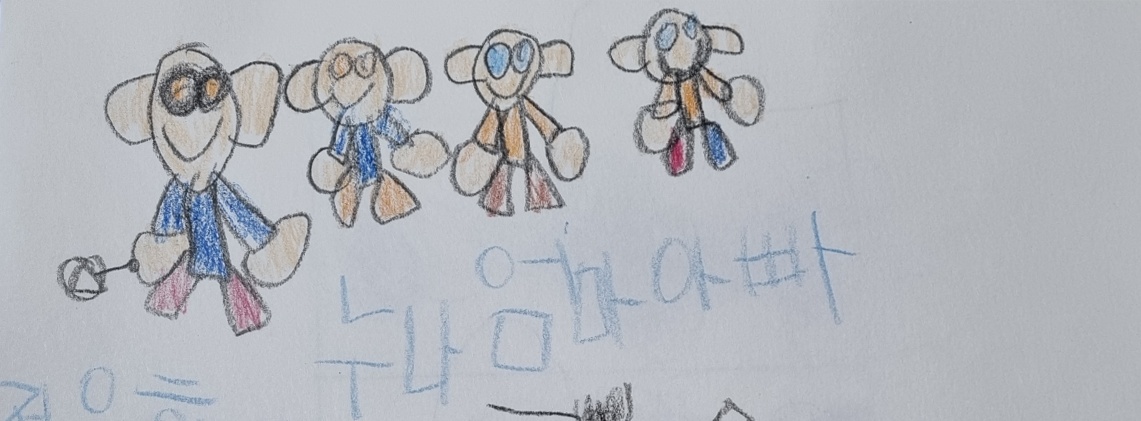 누나 엄마 아빠